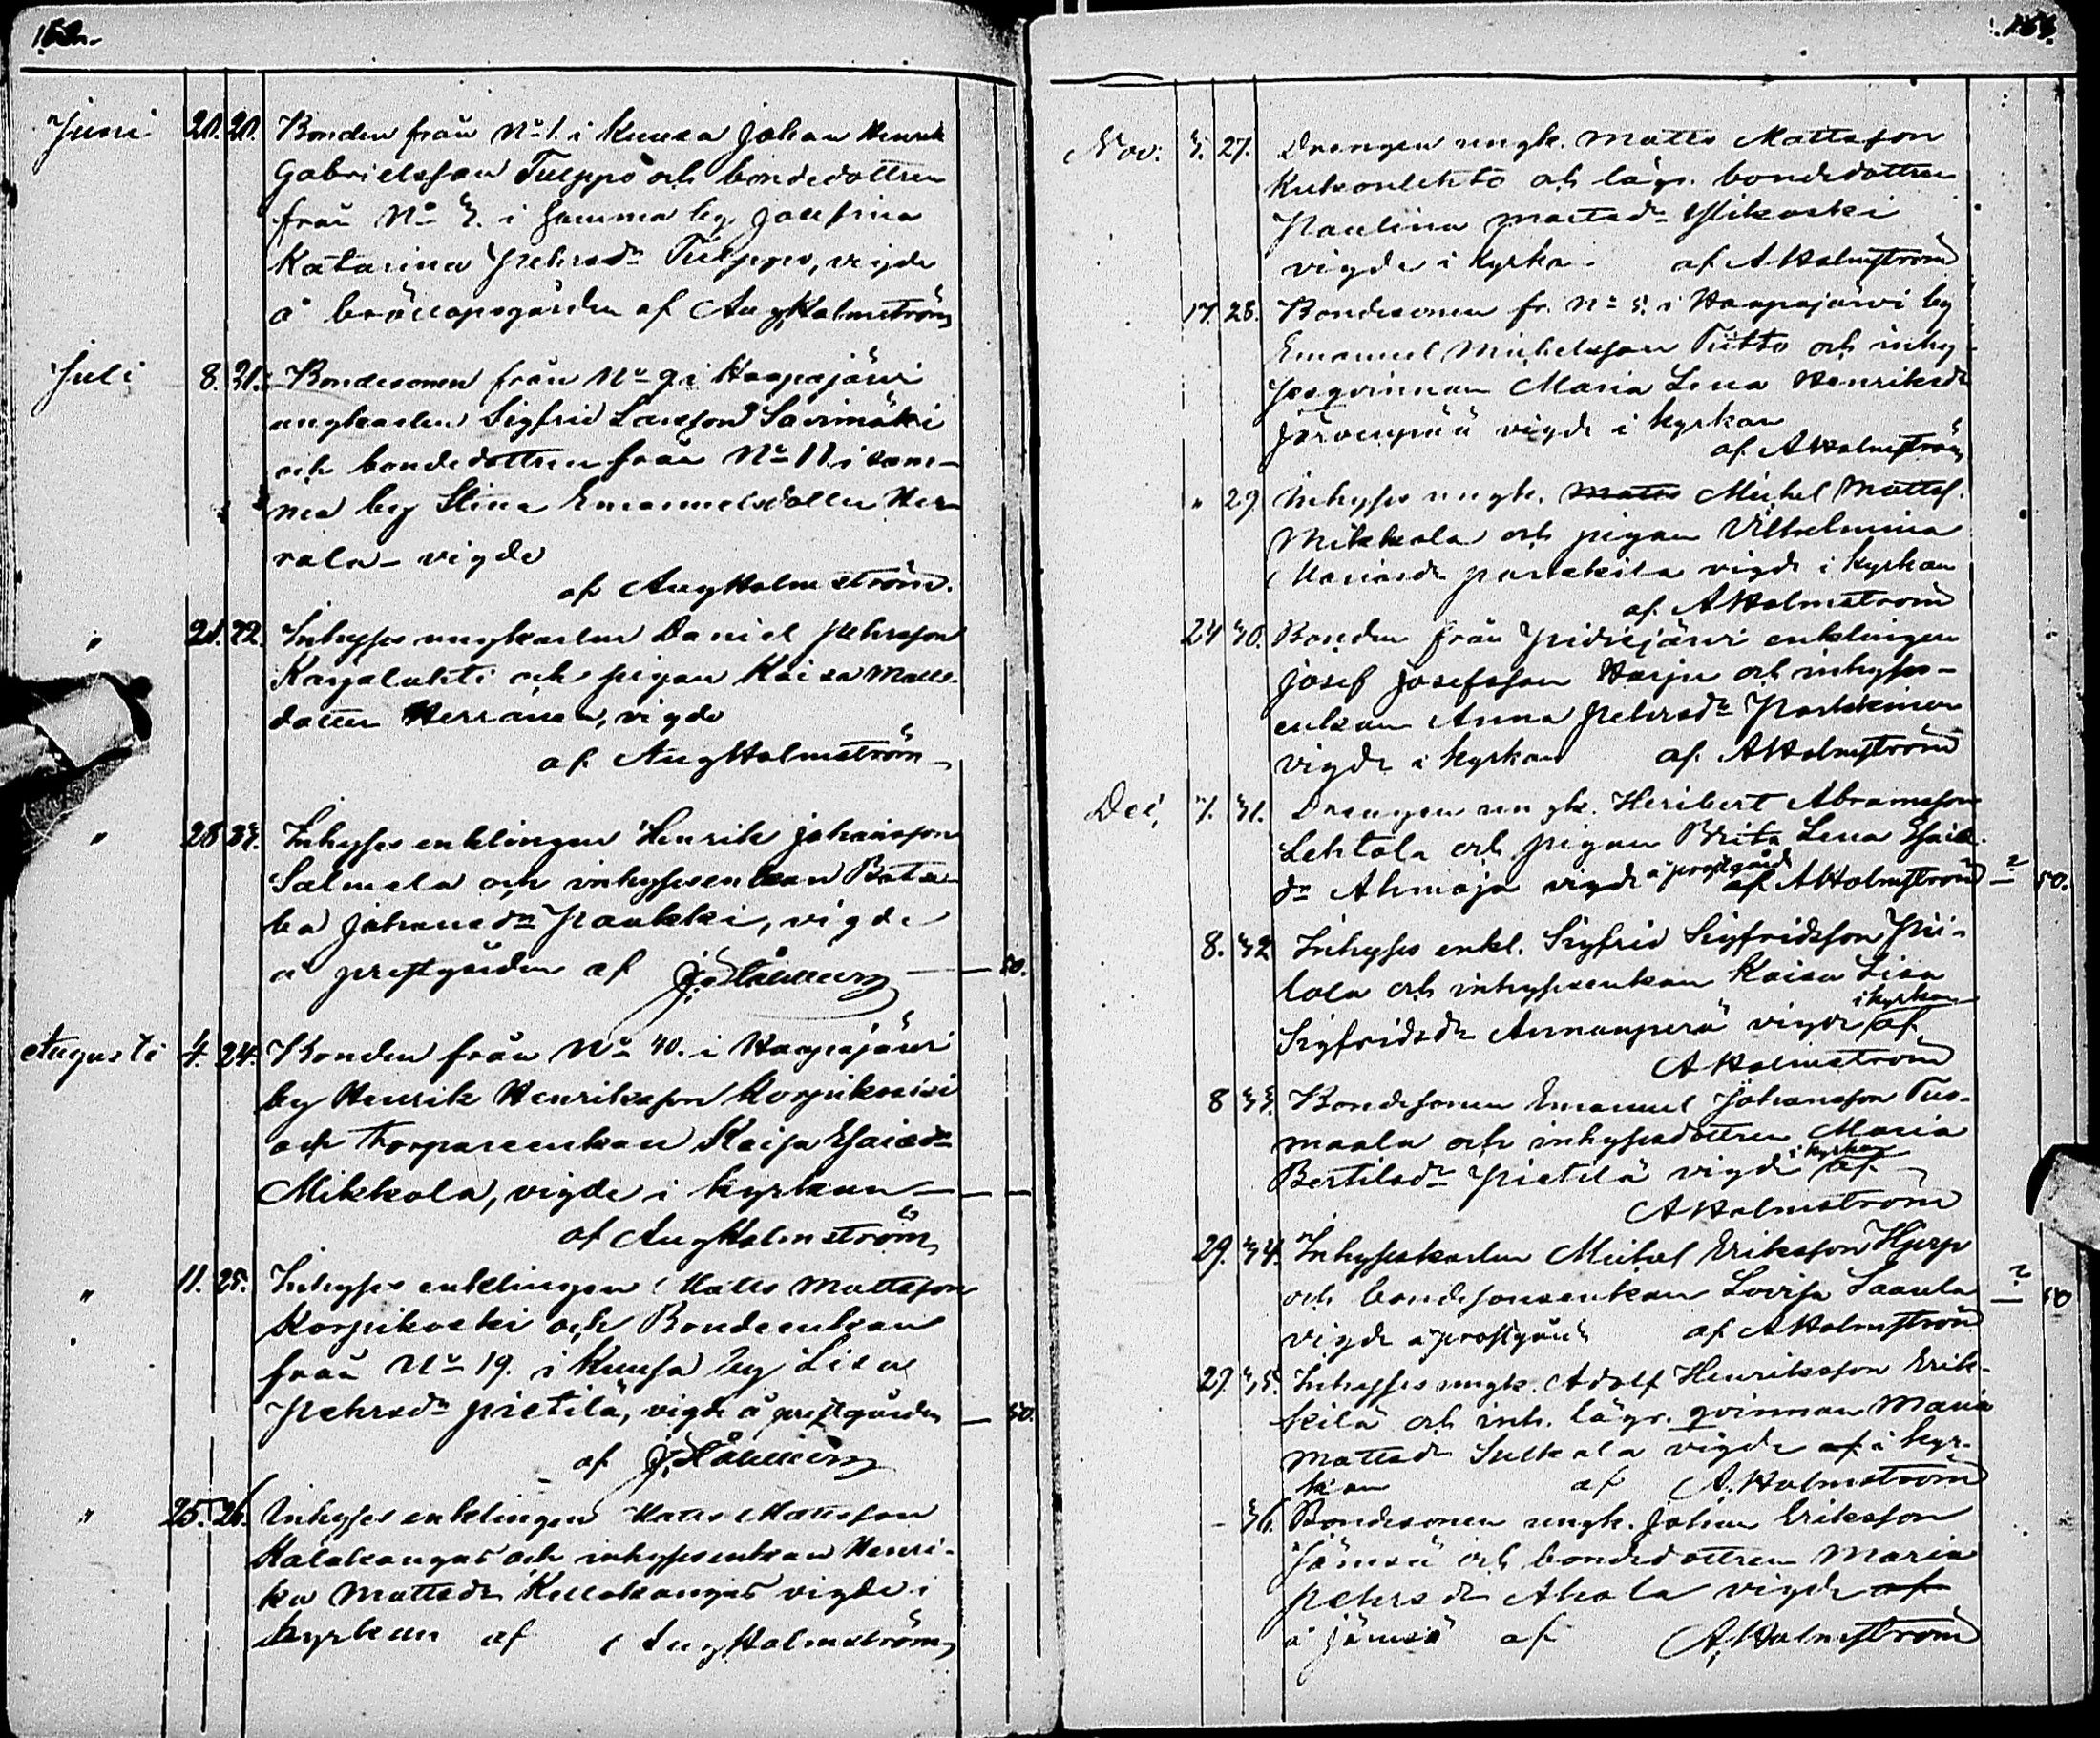 152.
Juni 20. 20. Bonden från No 1. i Kuusa Johan Henrik
Gabrielsson Tulppo och bondedottren
från No 3. i samma by Josefina
Katarina Pehrsdr Tulppo, vigde
å bröllopsgården af Aug Holmström
Juli 8. 21. Bondesonen från No 9 i Haapajärvi
ungkarlen Sigfrid Larsson Savimäki
och bondedottren från No 11. i sam-
ma by Stina Emanuelsdotter Her-
rala - vigde
af Aug Holmström.
" 21. 22. Inhyses ungkarlen Daniel Pehrsson
Karjalahti och pigan Kaisa Matts-
dotter Herranen, vigde
af Aug Holmström
" 28 23. Inhyses enklingen Henrik Johansson
Salmela och inhysesenkan Bata-
ba Johansdr Paukki, vigde
å prestgården af — 50.
Augusti 4. 24. Bonden från No 40. i Haapajärvi
by Henrik Henriksson Korpikoski
och torpareenkan Kaisa Esaiædr
Mikkola, vigde i kyrkan — — —
af Aug Holmström
" 11. 25. Inhyses enklingen Matts Mattsson
Korpikoski och Bondeenkan
från No 19. i Kuusa by Lisa
Pehrsdr Pietilä, vigde å prestgården — 50.
af
" 25. 26. Inhyses enklingen Matts Mattsson
Halakangas och inhysesenkan Henri-
ka Mattsdr Kellokangas vigde i
kyrkan af Aug Holmström
Nov. 3. 27. Drengen ungk. Matts Mattsson
Kukonlehto och lägr. bondedottren
Paulina Mattsdr Ylikoski
vigde i kyrkan af A Holmström
17. 28. Bondesonen fr. No 5. i Haapajärvi by
Emanuel Michelsson Tiitto och inhy-
sesqvinnan Maria Lena Henriksdr
Järvenpää vigde i kyrkan
af A Holmström
" 29. Inhyses ungk. Matts Michel Mattss.
Mikkola och pigan Vilhelmina
Mariasdr vigde i kyrkan
af A Holmström
24 30. Bonden från Pidisjärvi enklingen
Josef Josefsson Harju och inhyses-
enkan Anna Pehrsdr Parkkinen
vigde i kyrkan af A Holmström
Dec. 7. 31. Drengen ungk. Heribert Abramsson
Lehtola och pigan Brita Lena Esaiæ
dr Ahmaja vigde å prestgård. af A Holmström — 2 50.
8. 32 Inhyses enkl. Sigfrid Sigfridsson Pii-
lola och inhysesenkan Kaisa Lisa
Sigfridsdr Annanperä vigde i kyrkan af
A Holmström
8 33. Bondesonen Emanuel Johansson Tuo-
maala och inhysesdottren Maria
Bertilsdr Pietilä vigde i kyrkan af
A Holmström
29. 34. Inhyseskarlen Michel Eriksson Hjerp
och bondesonsenkan Lovisa Saarela — 2 50
vigde å prestgård af A Holmström
29. 35. Inhyses ungk. Adolf Henriksson Erik-
kilä och inh. lägr. qvinnan Maria
Mattsdr Sulkala vigde af i kyr-
kan af A. Holmström
- 36. Bondesonen ungk. Johan Eriksson
Jämsä och bondedottren Maria
Pehrsdr Ahola vigde af
å Jämsä af A. Holmström